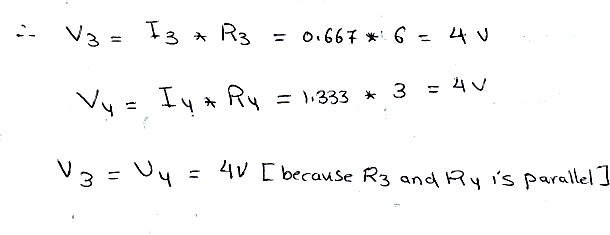 ∴ V3 = I3 * R3 = 0.667 * 6 = 4 V
V4 = I4 * R4 = 1.333 * 3 = 4V
V3 = V4 = 4V [because R3 and R4 is parallel]